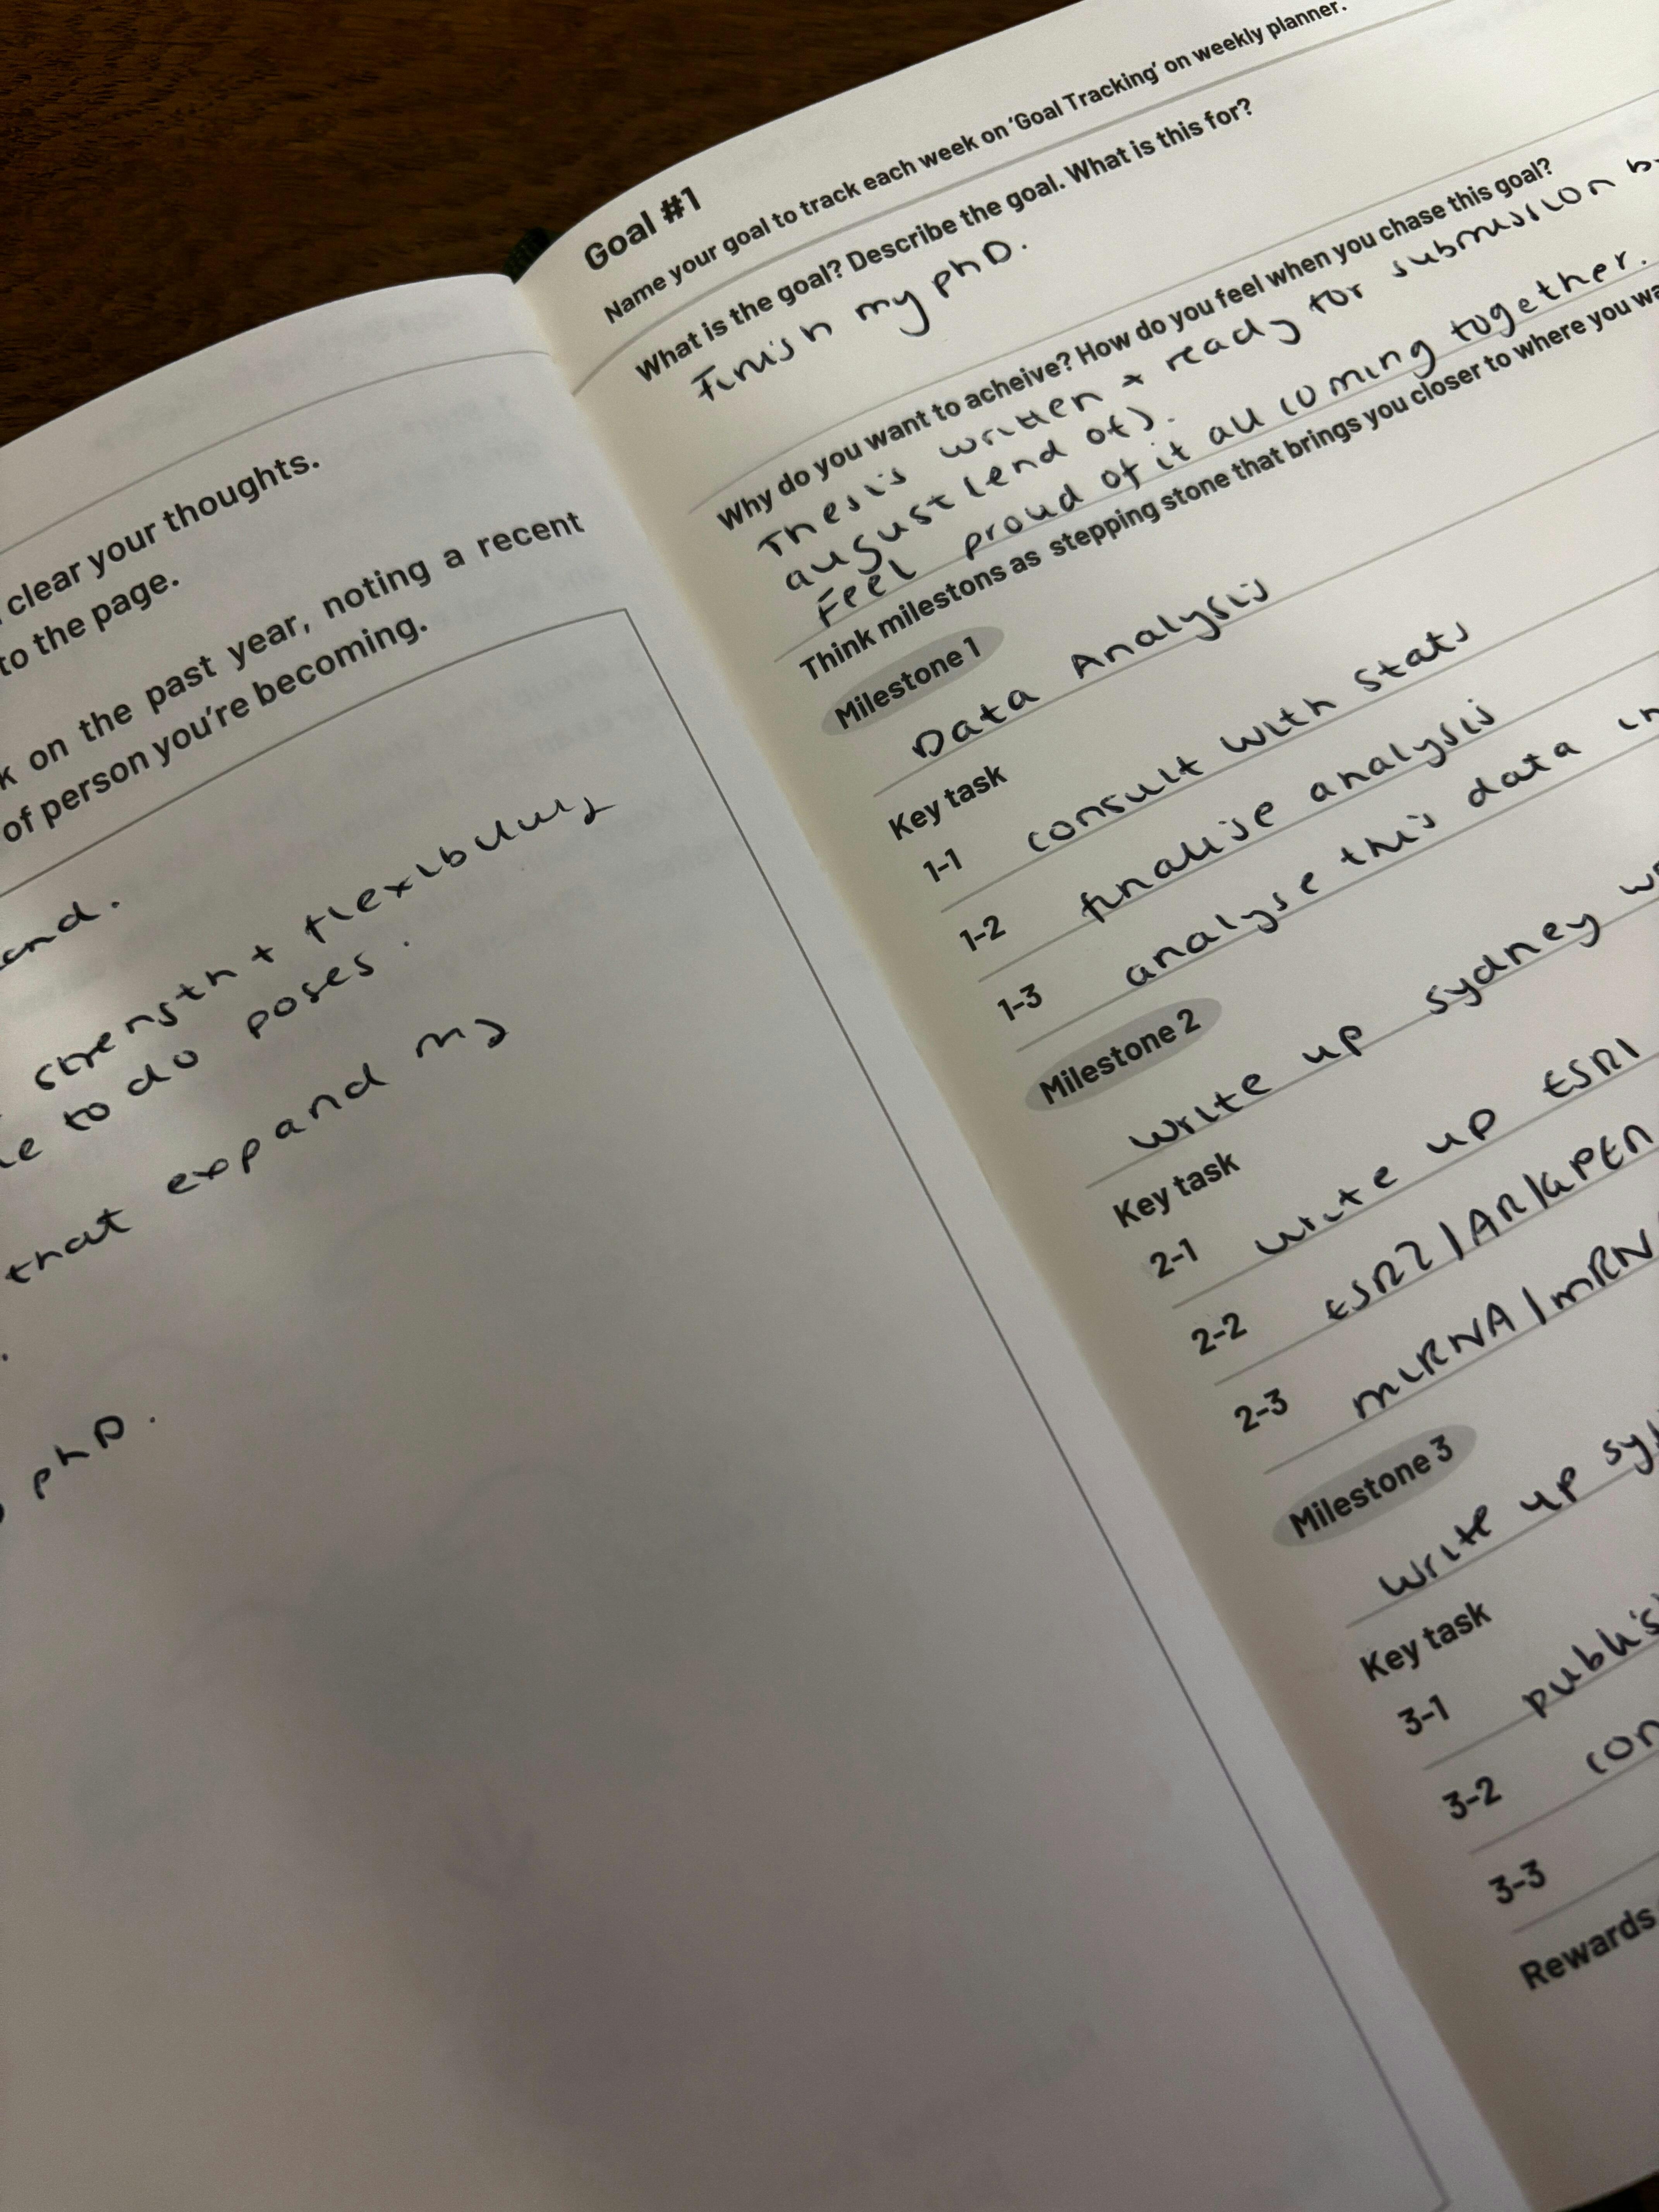 clear your thoughts.
to the page.
on the past year, noting a recent
of person you're becoming.
strength + flexibility
to do poses.
that expand my
phD.
Goal #1
Name your goal to track each week on 'Goal Tracking' on weekly planner.
What is the goal? Describe the goal. What is this for?
Finish my phD.
Why do you want to acheive? How do you feel when you chase this goal?
Thesis written + ready for submission by
august (end of).
Feel proud of it all coming together.
Think milestons as stepping stone that brings you closer to where you
Milestone 1
Data Analysis
Key task
1-1 consult with stats
1-2 finalise analysis
1-3 analyse this data in
Milestone 2
Write up sydney
Key task
2-1 write up ESR1
2-2 ESR2/AR/GPER
2-3 miRNA/mRNA
Milestone 3
Write up
Key task
3-1
3-2
3-3
Rewards